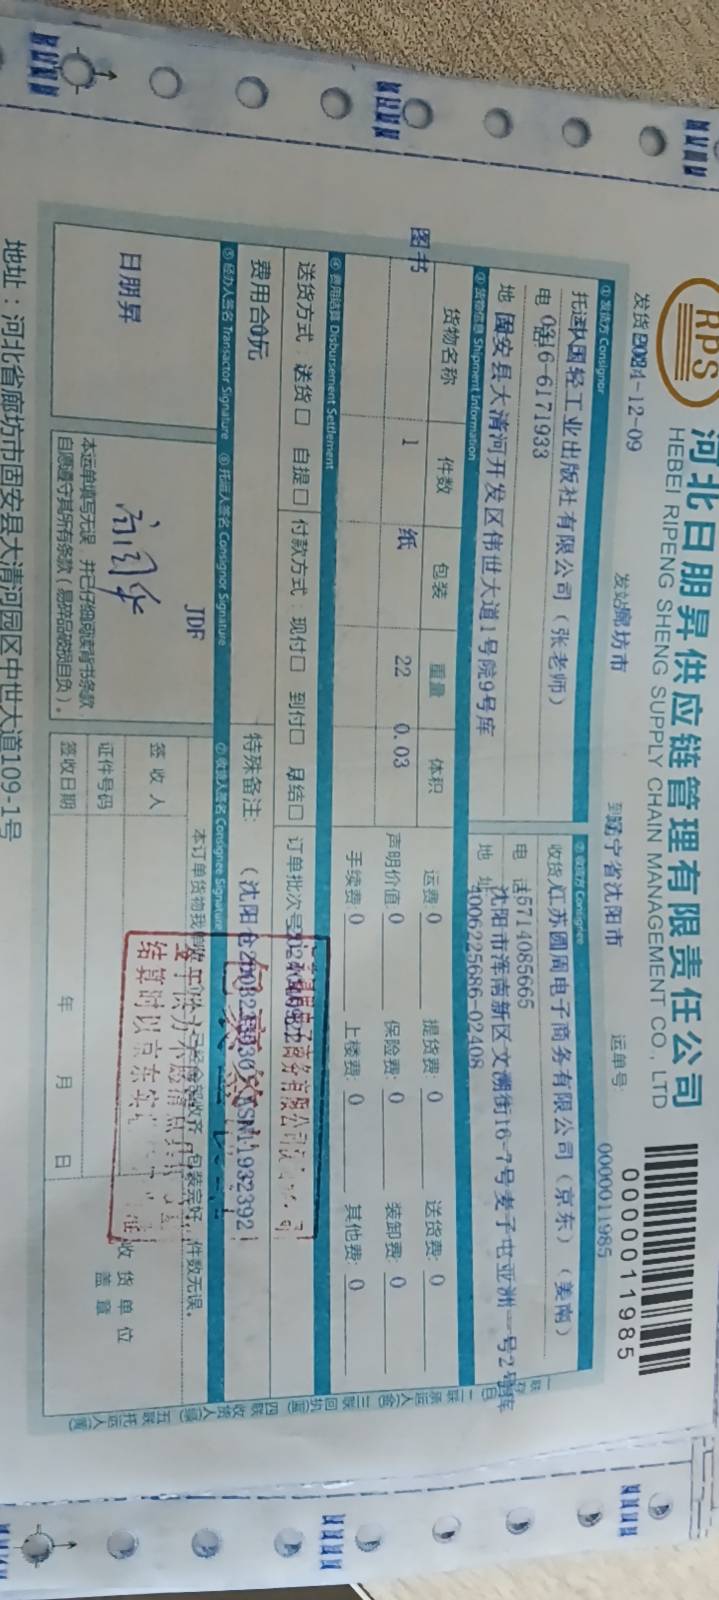 RPS
河北日朋昇供应链管理有限责任公司
HEBEI RIPENG SHENG SUPPLY CHAIN MANAGEMENT CO., LTD
0000011985
发货 2024-12-09
发站 廊坊市
到站 辽宁省沈阳市
运单号: 0000011985
① 发货方 Consignor
② 收货方 Consignee
国轻工业出版社有限公司（张老师）
收货 江苏圆周电子商务有限公司（京东）（姜南）
电话 0316-6171933
电 话 15714085665
地 固安县大清河开发区伟世大道1号院9号库
地 址 沈阳市浑南新区文溯街16-7号麦子屯亚洲一号2号库
4006225686-02408
③ 货物信息 Shipment Information
货物名称 件数 包装 重量 体积
图书 1 纸 22 0.03
运费: 0 提货费: 0 送货费: 0
声明价值 0 保险费: 0 装卸费: 0
手续费: 0 上楼费: 0 其他费: 0
④ 费用结算 Disbursement Settlement
送货方式: 送货□ 自提□ 付款方式: 现付□ 到付□ 月结□ 订单批次号
费用合 0元
特殊备注: （沈阳仓
⑤ 经办人签名 Transactor Signature
⑥ 托运人签名 Consignor Signature
⑦ 收货人签名 Consignee Signature
日朋昇
JDF
本运单填写无误，并已仔细阅读背书条款，
自愿遵守其所有条款（易碎品破损自负）。
本订单货物我单位 已经全部收齐，包装完好，件数无误。
签 收 人
证件号码
签收日期 年 月 日
收 货 单 位
盖 章
包装
结算时以京东实
地址：河北省廊坊市固安县大清河园区中世大道109-1号